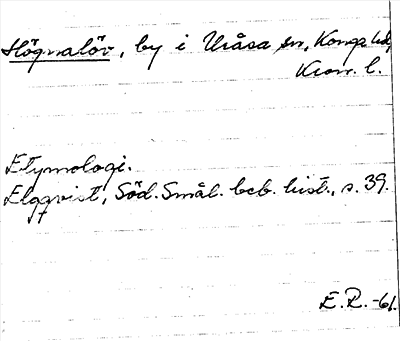 Högnalöv, by i Uråsa sn, Konga hd,
Kron. l.
Etymologi.
Elgqvist, Söd. Smål. beb. hist., s. 39.
E. R. -61.